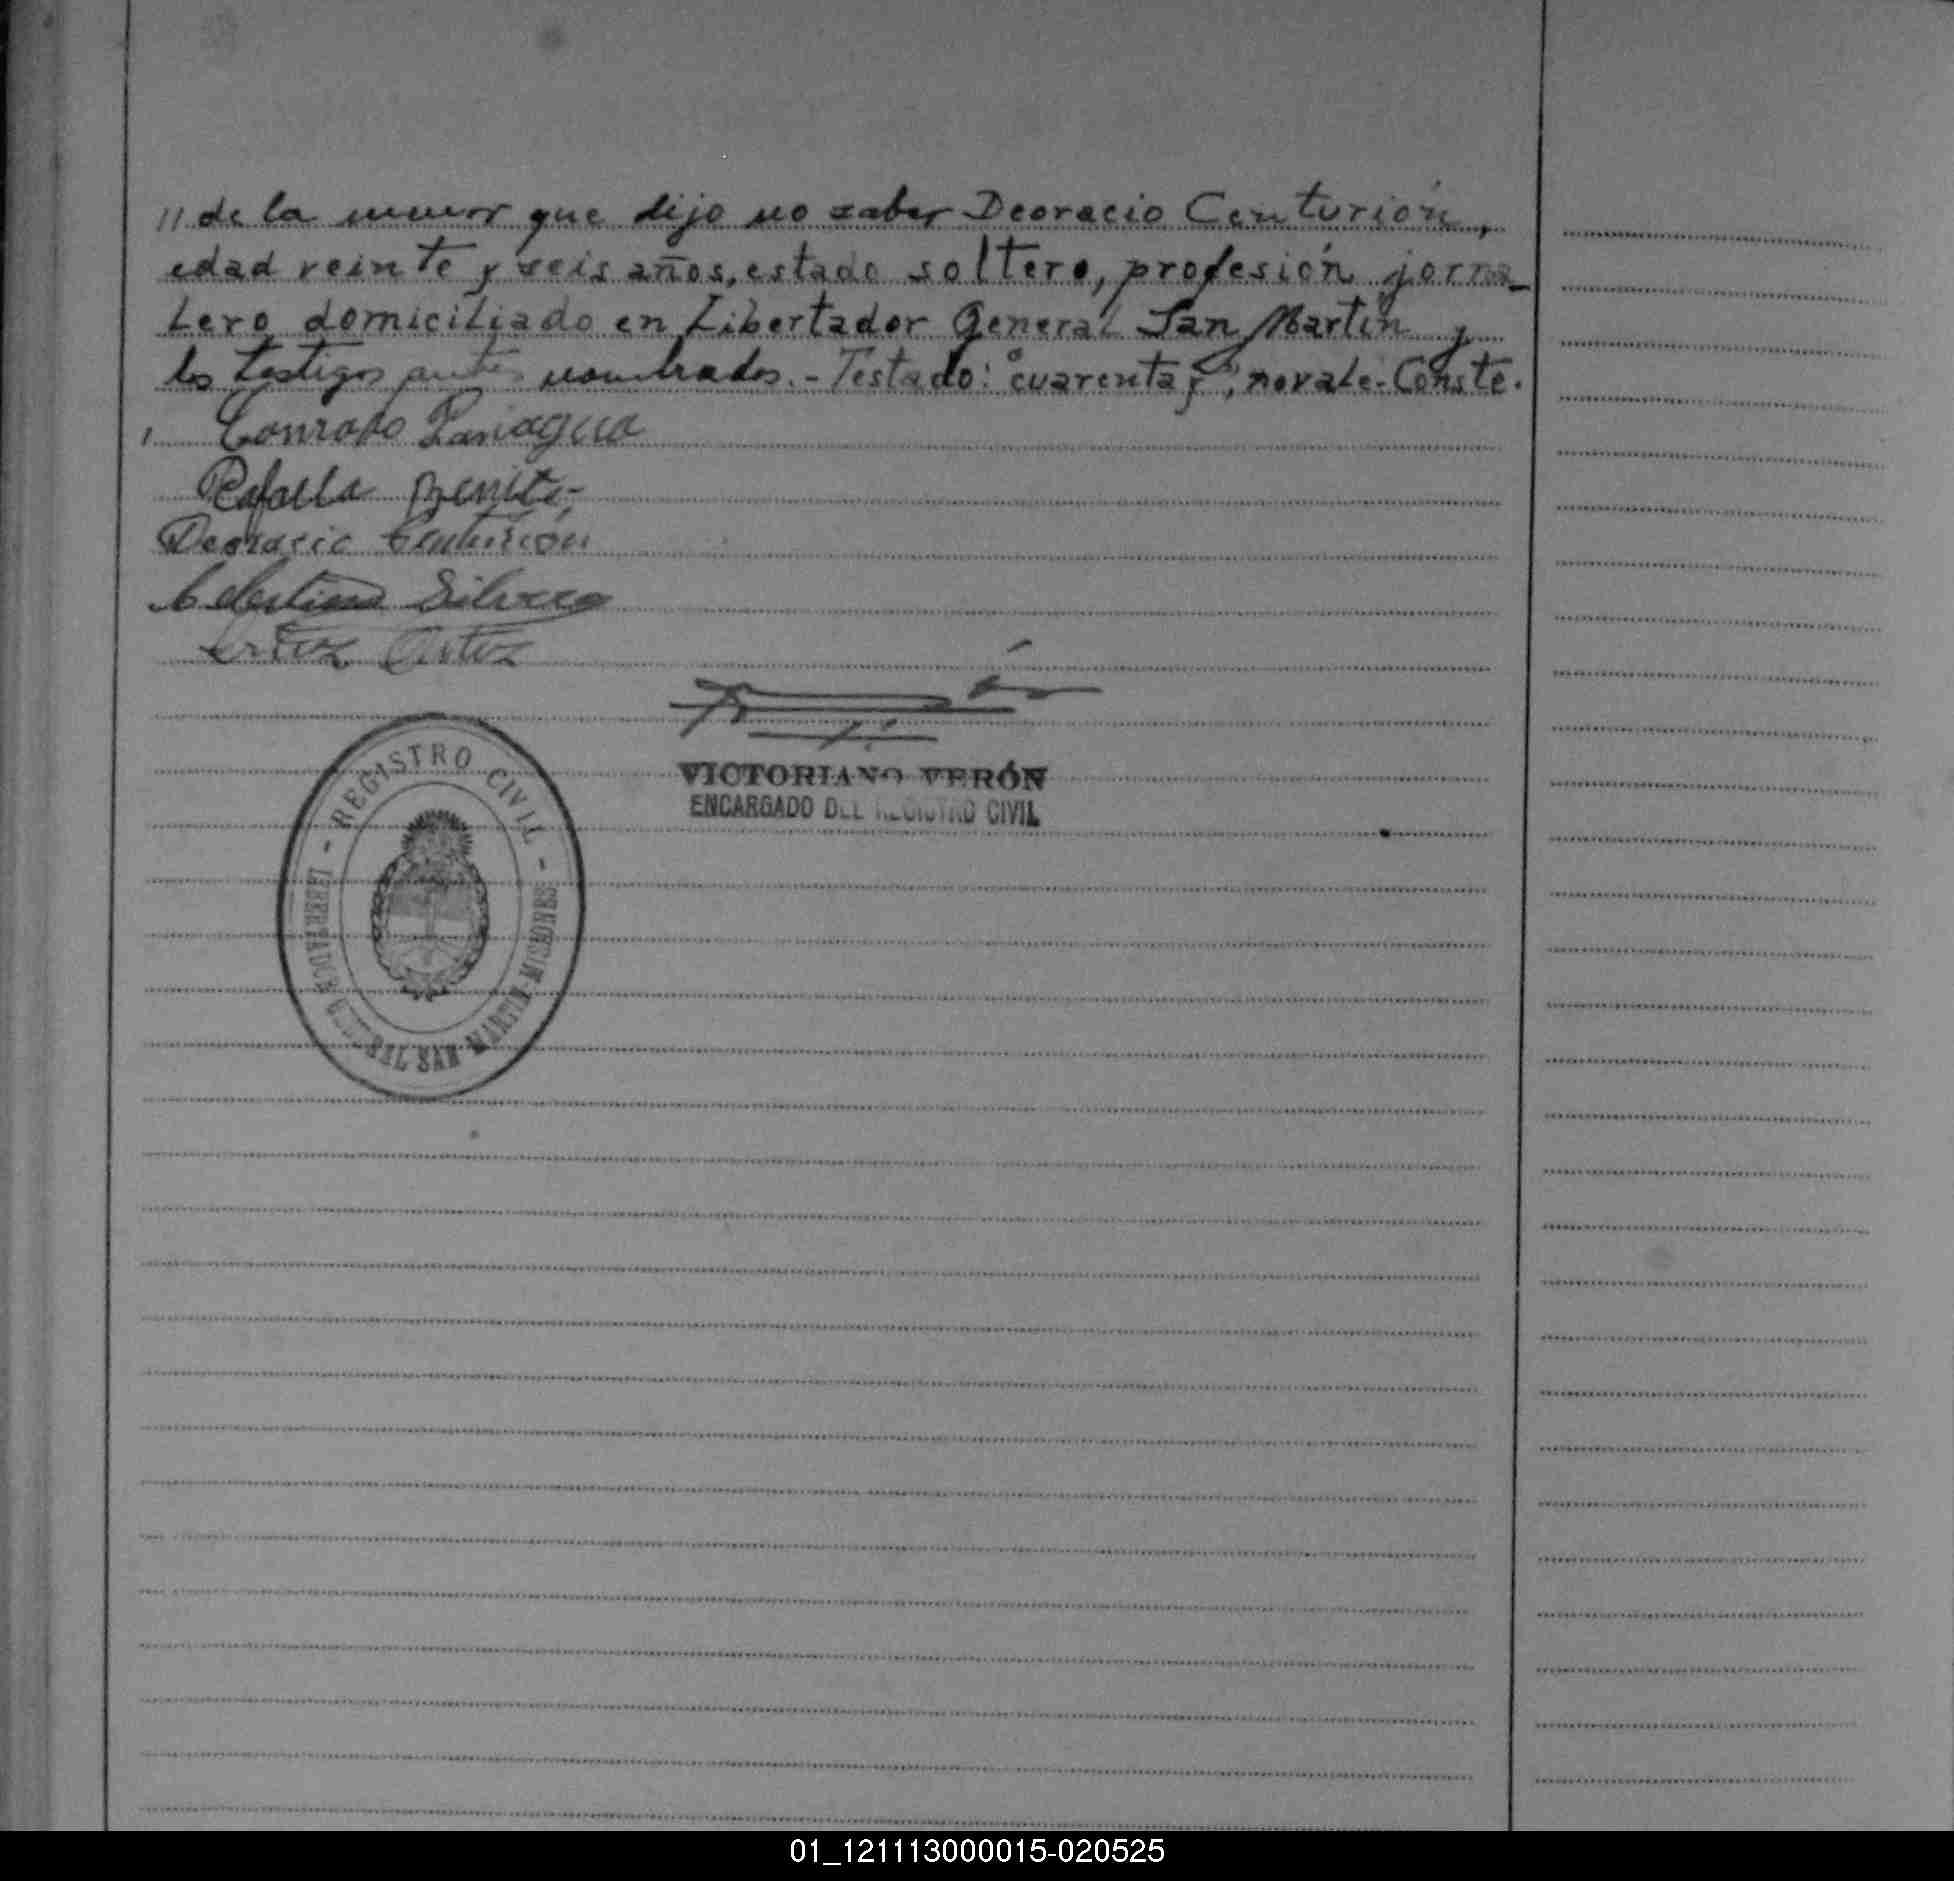 // de la menor que dijo no saber Deoracio Centurión,
edad veinte y seis años, estado soltero, profesión jorna-
lero domiciliado en Libertador General San Martín y
los testigos antes nombrados.- Testado: "cuarenta y", no vale. Conste.
Conrado Paniagua
Rafaela Benite
Deoracio Centurión
Celestino Silvero
Ortoz
VICTORIANO VERÓN
ENCARGADO DEL REGISTRO CIVIL
- REGISTRO CIVIL -
LIBERTADOR GENERAL SAN MARTIN-MISIONES
01_121113000015-020525